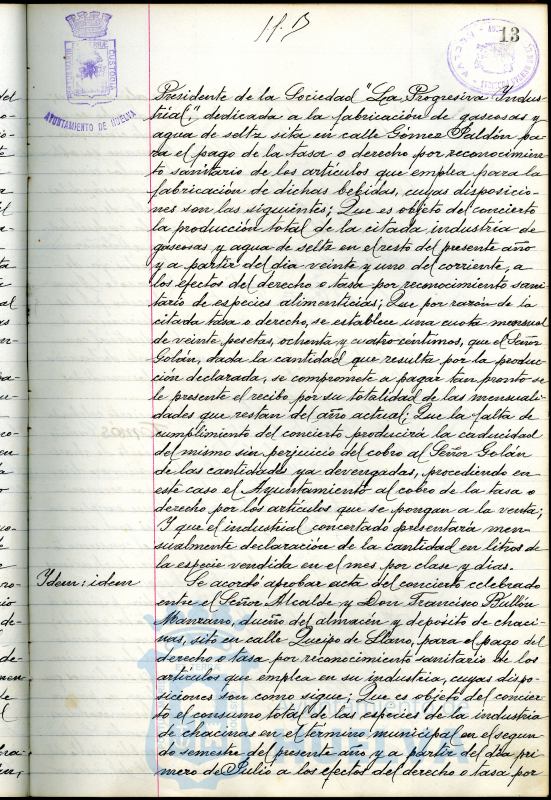 13
AYUNTAMIENTO DE HUELVA
Presidente de la Sociedad "La Progresiva Indus-
trial", dedicada a la fabricación de gaseosas y
agua de seltz sita en calle Gómez Jaldón pa-
ra el pago de la tasa o derecho por reconocimien-
to sanitario de los artículos que emplea para la
fabricación de dichas bebidas, cuyas disposicio-
nes son las siguientes; Que es objeto del concierto
la producción total de la citada industria de
gaseosas y agua de seltz en el resto del presente año
y a partir del dia veinte y uno del corriente, a
los efectos del derecho o tasa por reconocimiento sani-
tario de especies alimenticias; Que por razón de la
citada tasa o derecho, se establece una cuota mensual
de veinte pesetas, ochenta y cuatro céntimos, que el Señor
Golán, dada la cantidad que resulta por la produc-
ción declarada, se compromete a pagar tan pronto se
le presente el recibo por su totalidad de las mensuali-
dades que restan del año actual; Que la falta de
cumplimiento del concierto producirá la caducidad
del mismo sin perjuicio del cobro al Señor Golán
de las cantidades ya devengadas, procediendo en
este caso el Ayuntamiento al cobro de la tasa o
derecho por los artículos que se pongan a la venta;
Y que el industrial concertado presentará men-
sualmente declaración de la cantidad en litros de
la especie vendida en el mes por clase y dias.
Ydem: idem
Se acordó aprobar acta del concierto celebrado
entre el Señor Alcalde y Don Francisco Bullón
Manzano, dueño del almacén y depósito de chaci-
nas, sito en calle Queipo de Llano, para el pago del
derecho o tasa por reconocimiento sanitario de los
artículos que emplea en su industria, cuyas dispo-
siciones son como sigue; Que es objeto del concier-
to el consumo total de las especies de la industria
de chacinas en el término municipal en el segun-
do semestre del presente año y a partir del dia pri-
mero de Julio a los efectos del derecho o tasa por